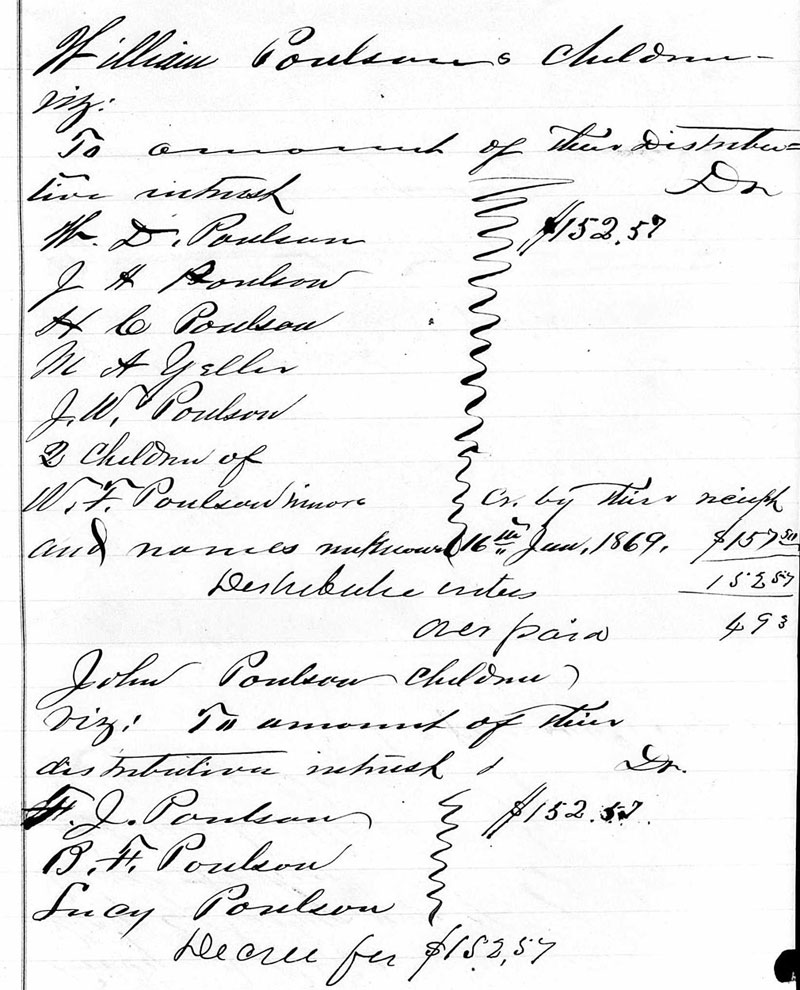 William Poulson s Children
viz:
To amount of their Distribu-
tive intrest Dr
W. D. Poulson $152.57
J H Poulson
H C Poulson
M A Yeller
J. W. Poulson
2 Children of
W. F. Poulson minors Cr. by their receipt
and names unknown 16th Jan, 1869. $157 50
Distributive intres 152 57
over paid 4 93
John Poulson Children
viz: To amount of their
distributive intrest Dr.
F. J. Poulson $152.57.
B. F. Poulson
Lucy Poulson
Decree for $152,57